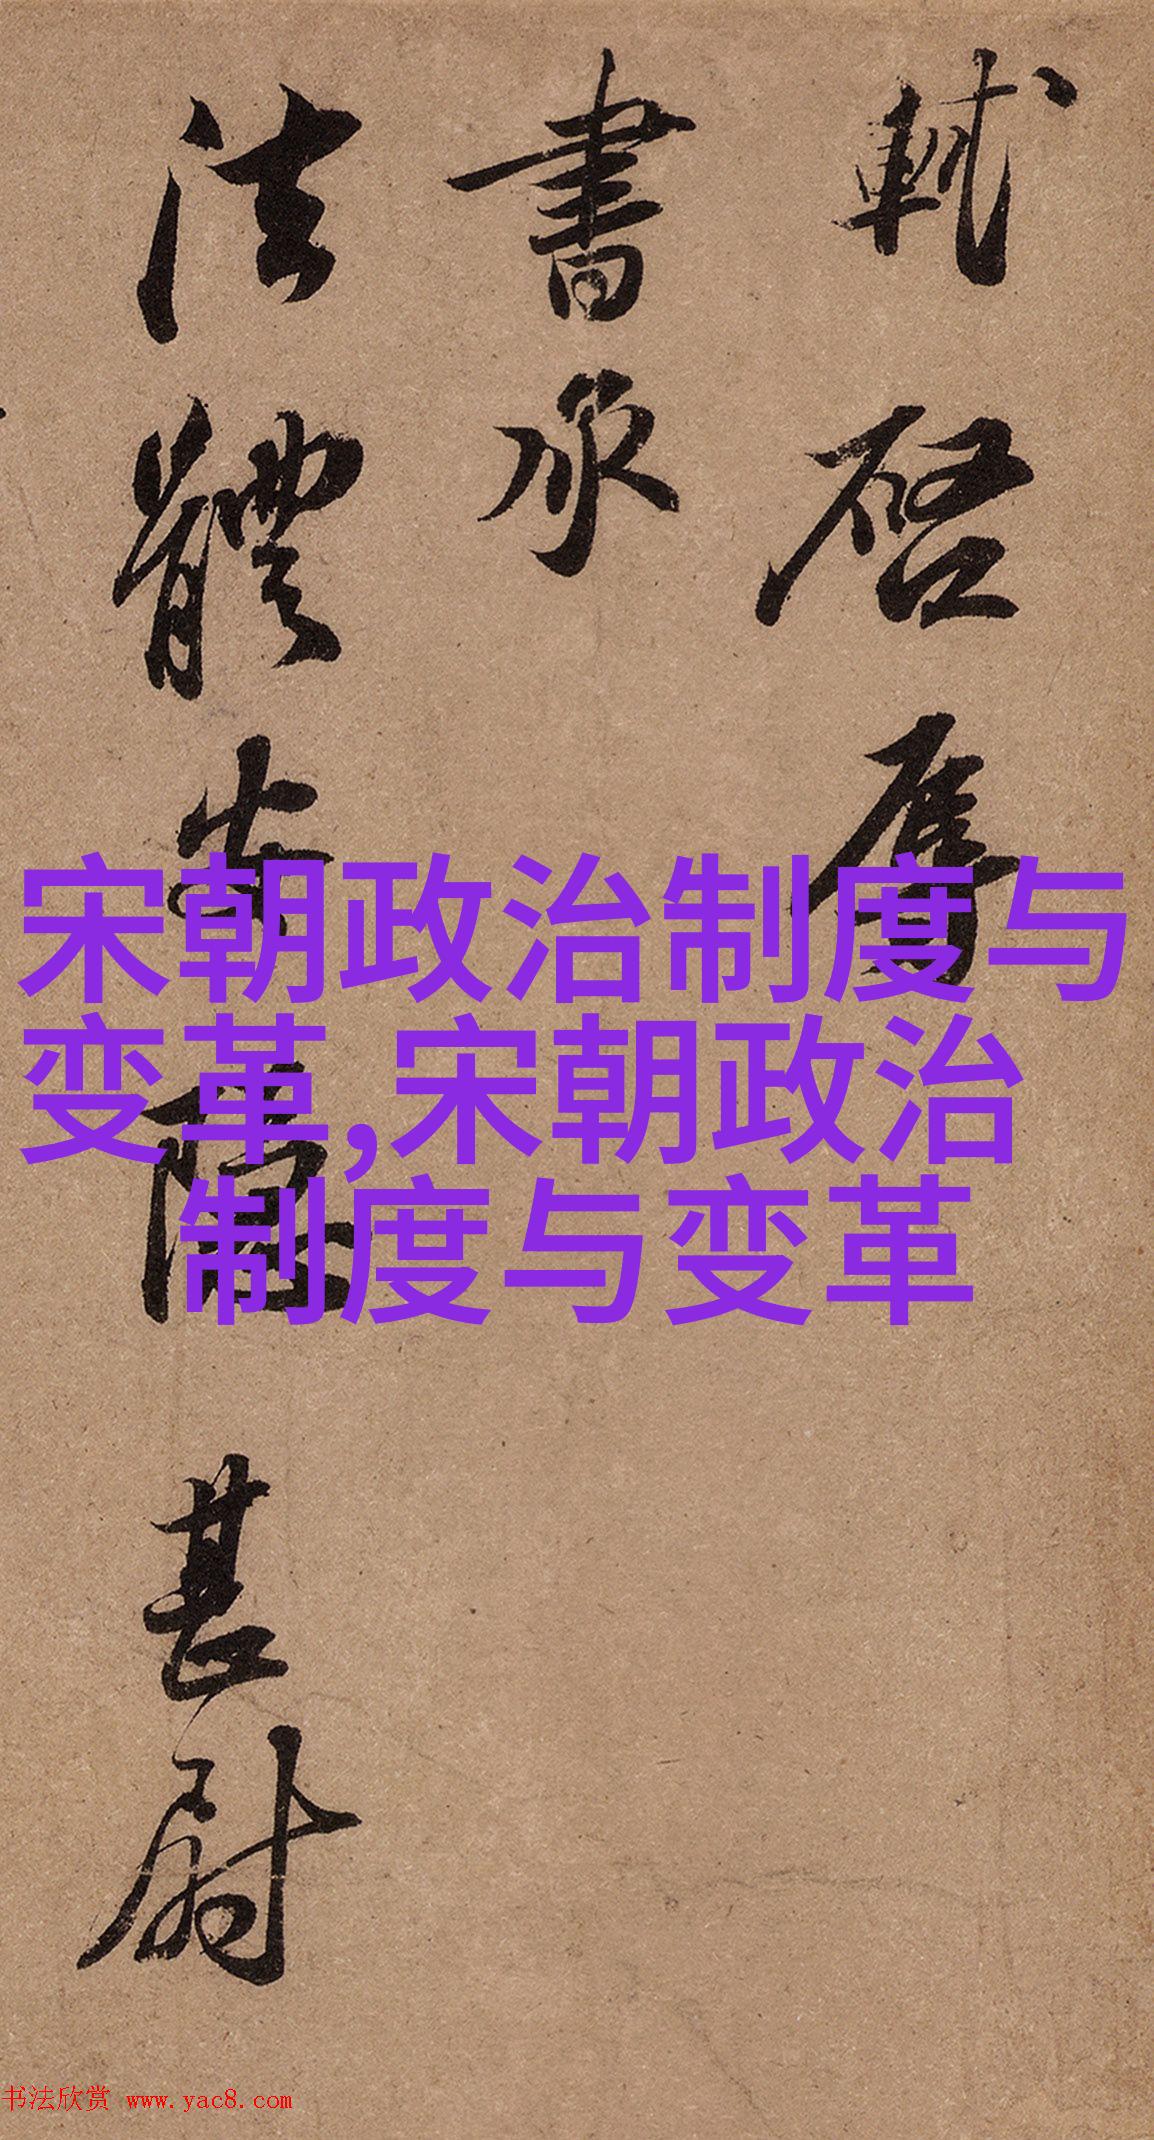 軾啓辱
書承
法體安隱甚尉
宋朝政治制度与
变革,宋朝政治
制度与变革
书法欣赏 www.yac8.com